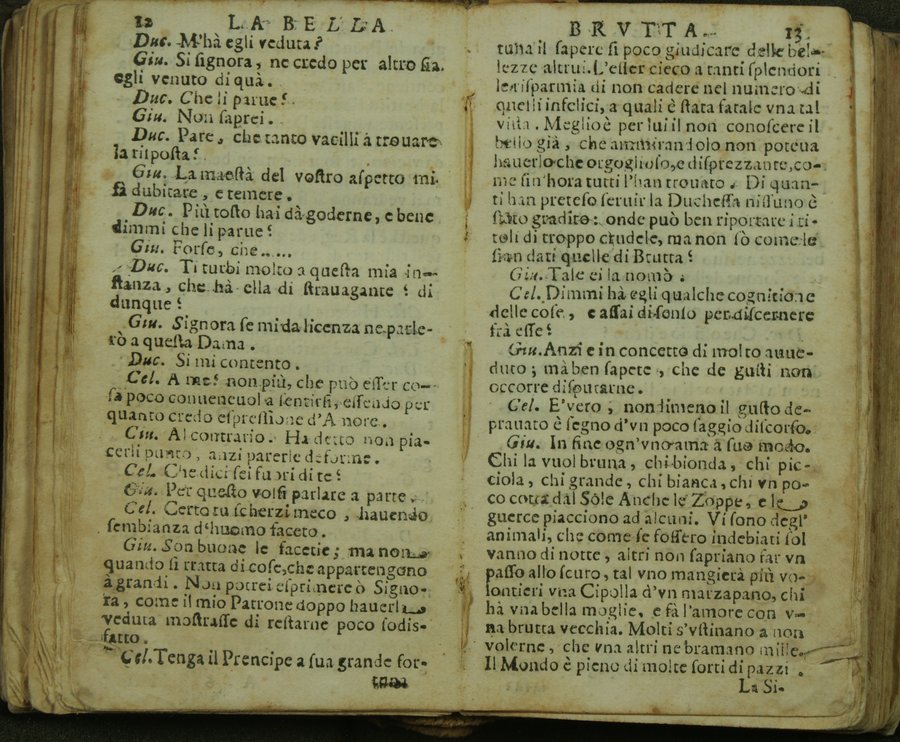 12 LA BELLA
Duc. M'hà egli veduta?
Giu. Si signora, ne credo per altro sia
egli venuto di quà.
Duc. Che li parue?
Giu. Non saprei.
Duc. Pare, che tanto vacilli à trouare
la risposta?
Giu. La maestà del vostro aspetto mi
fà dubitare, e temere.
Duc. Più tosto hai dà goderne, e bene
dimmi che li parue?
Giu. Forse, che.....
Duc. Ti turbi molto a questa mia in-
stanza, che hà ella di strauagante? di
dunque?
Giu. Signora se mi da licenza ne parle-
rò a questa Dama.
Duc. Si mi contento.
Cel. A me? non più, che può esser co-
sa poco conueneuol a sentirsi, essendo per
quanto credo espressione d'Amore.
Ciu. Al contrario. Ha detto non pia-
cerli punto, anzi parerle deforme.
Cel. Che dici sei fuori di te?
Giu. Per questo volsi parlare a parte.
Cel. Certo tu scherzi meco, hauendo
sembianza d'huomo faceto.
Giu. Son buone le facetie; ma non
quando si tratta di cose, che appartengono
à grandi. Non potrei esprimere ò Signo-
ra, come il mio Patrone doppo hauerla
veduta mostrasse di restarne poco sodis-
fatto.
Cel. Tenga il Prencipe a sua grande for-
tuna
BRVTTA. 13
tuna il sapere si poco giudicare delle bel-
lezze altrui. L'esser cieco a tanti splendori
le risparmia di non cadere nel numero di
quelli infelici, a quali è stata fatale vna tal
vista. Meglio è per lui il non conoscere il
bello già, che ammirandolo non poteua
hauerlo che orgoglioso, e disprezzante, co-
me sin'hora tutti l'han trouato. Di quan-
ti han preteso seruir la Duchessa nissuno è
stato gradito: onde può ben riportare i ti-
toli di troppo crudele, ma non sò come le
sian dati quelle di Brutta?
Giu. Tale ei la nomò.
Cel. Dimmi hà egli qualche cognitione
delle cose, e assai di senso per discernere
frà esse?
Giu. Anzi e in concetto di molto auue-
duto; mà ben sapete, che de gusti non
occorre disputarne.
Cel. E' vero, nondimeno il gusto de-
prauato è segno d'vn poco saggio discorso.
Giu. In fine ogn'vno ama à suo modo.
Chi la vuol bruna, chi bionda, chi pic-
ciola, chi grande, chi bianca, chi vn po-
co cotta dal Sole Anche le Zoppe, e le
guerce piacciono ad alcuni. Vi sono degl'
animali, che come se fossero indebiati sol
vanno di notte, altri non sapriano far vn
passo allo scuro, tal vno mangierà più vo-
lontieri vna Cipolla d'vn marzapano, chi
hà vna bella moglie, e fà l'amore con v-
na brutta vecchia. Molti s'vstinano a non
volerne, che vna altri ne bramano mille.
Il Mondo è pieno di molte sorti di pazzi.
La Si-